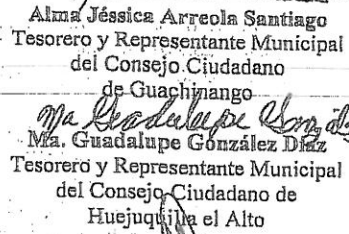 Alma Jéssica Arreola Santiago
Tesorero y Representante Municipal
del Consejo Ciudadano
de Guachinango
Ma Guadalupe Gonzál
Ma. Guadalupe González Díaz
Tesorero y Representante Municipal
del Consejo Ciudadano de
Huejuquilla el Alto